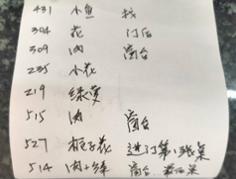 431 小鱼 找
304 花 门后
309 肉 窗台
235 小花
219 绿萝
515 肉 窗台
527 栀子花 进门第一张桌
514 肉+绿 窗台